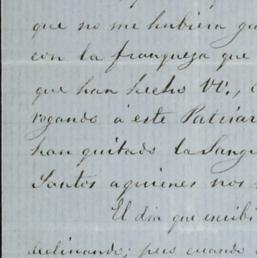 que no me hubiera gu
con la franqueza que
que han hecho VV.,
rogando á este Patriar
han quitado la Sangr
Santos aquienes nos
El dia que escribi
declinando; pero cuando